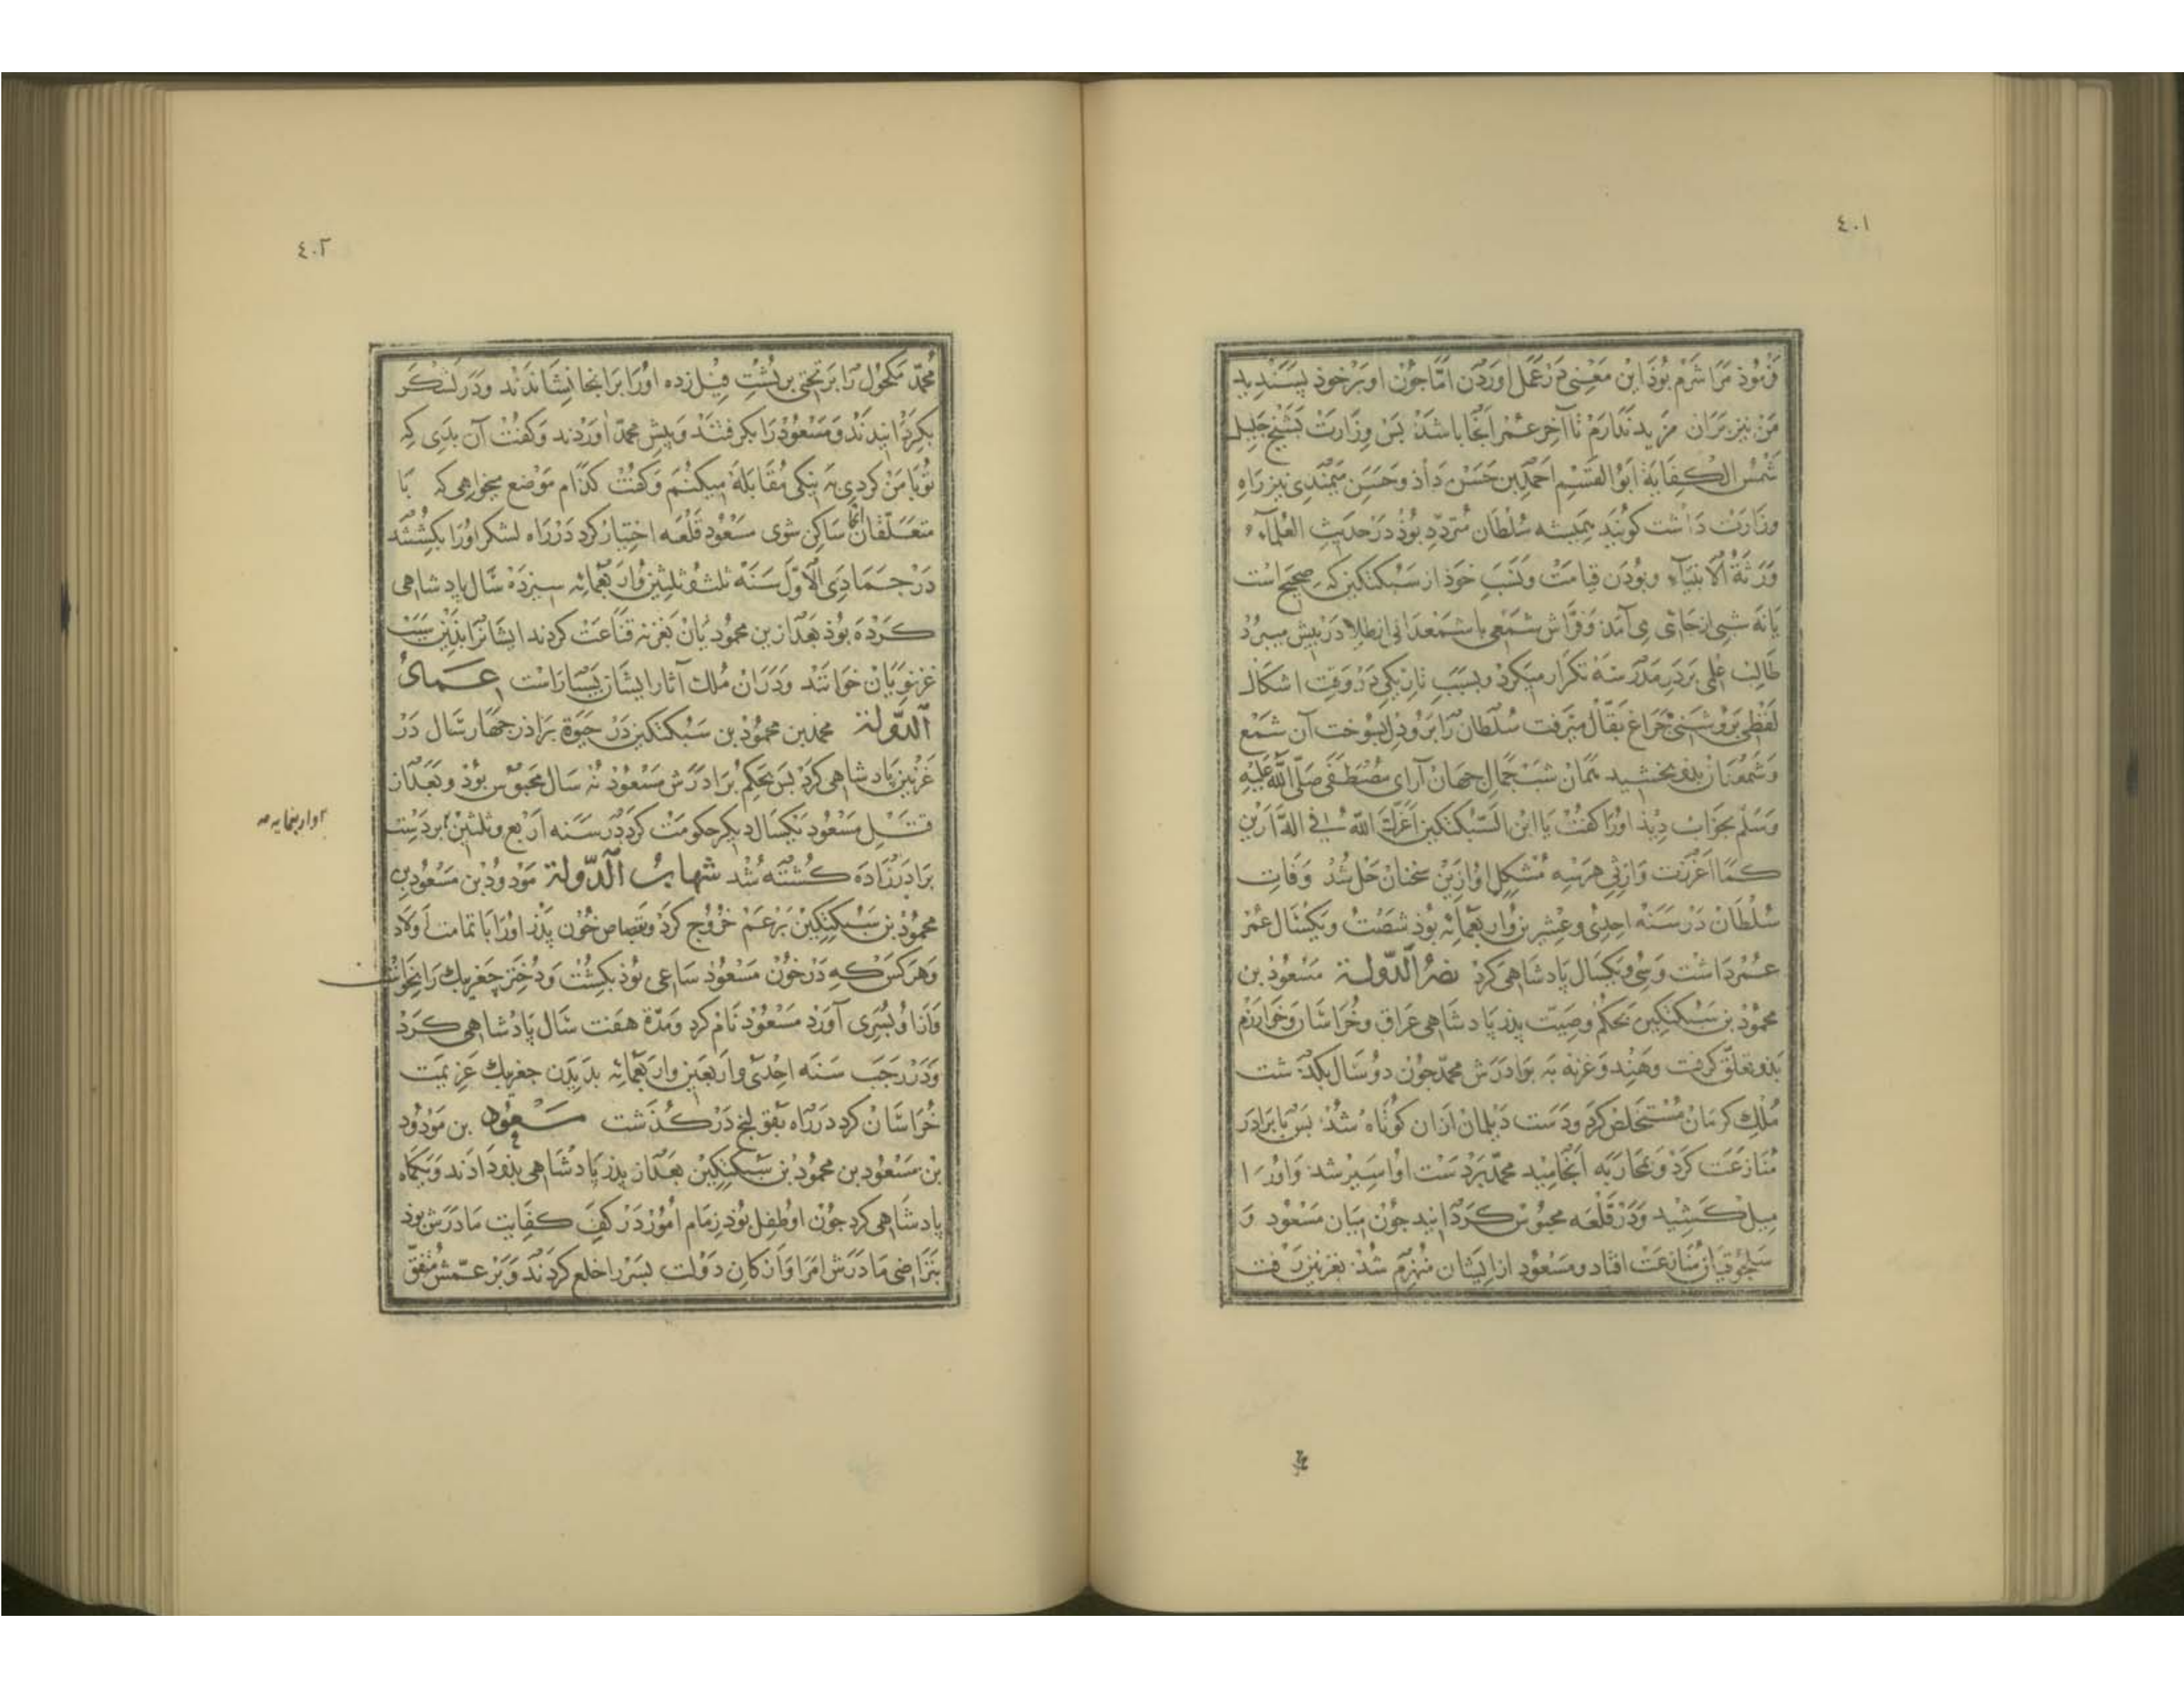 ٤٠١
فرمود مرا شرم بود این معنی در عمل آوردن اما جون او بر خود پسندید
من نیز بر آن مزید ندارم تا آخر عمر آنجا باشد پس وزارت بشیخ جلیل
شمس الکفایة ابو القسم احمد بن حسن داذ و حسن میمندی نیز راه
وزارت داشت کویند همیشه سلطان متردد بوذ در حدیث العلمآء
ورثة الانبیآء و بودن قیامت و نسب خوذ از سبکتکین که صحیح است
یا نه شبی از جائی می آمذ و فراش شمعی با شمعدانی از طلا در پیش میبرد
طالب علمی بر در مدرسه تکرار میکرد و بسبب تاریکی در وقت اشکال
لفظی بروشنی جراغ بقال میرفت سلطان را برو دل بسوخت آن شمع
و شمعدان بذو بخشید همان شب جمال جهان آرای مصطفی صلی الله علیه
وسلم بخواب دیذ اورا کفت یا ابن السبکتکین اعزک الله فی الدارین
کما اعززت وارثی هر سه مشکل او ازین سخنان حل شد وفات
سلطان در سنه احدی وعشرین واربعمائه بوذ شصت ویکسال عمر
عمر داشت وسی ویکسال پادشاهی کرد نصر الدولة مسعود بن
محمود بن سبکتکین بحکم وصیت پدر پادشاهی عراق وخراسان وخوارزم
بذو تعلق کرفت وهند وغزنه به برادرش محمد جون دو سال بکذشت
ملک کرمان مستخلص کرد ودست دیلمان ازان کوتاه شد پس با برادر
منازعت کرد وبمحاربه انجامید محمد بر دست او اسیر شد واورا
میل کشید ودر قلعه محبوس کردانید جون میان مسعود و
سلجوقیان منازعت افتاد ومسعود از ایشان منهزم شد بغزنین رفت
٤٠٢
محمد مکحول را بر تختی بر پشت فیل زده اورا بر انجا نشاندند ودر لشکر
بکردانیدند ومسعود را بکرفتند وپیش محمد آوردند وکفت آن بدی که
تو با من کردی به نیکی مقابله میکنم وکفت کدام موضع میخواهی که با
متعلقان آنجا ساکن شوی مسعود قلعه اختیار کرد در راه لشکر اورا بکشتند
در جمادی الاول سنه ثلث وثلثین واربعمائه سیزده سال پادشاهی
کرده بوذ بعد ازین محمودیان بغزنه قناعت کردند ایشانرا بذین سبب
غزنویان خوانند ودران ملک آثار ایشان بسیارست عماد
الدولة محمد بن محمود بن سبکتکین در حیوة براذر جهار سال در
غزنین پادشاهی کرد پس بحکم برادرش مسعود نه سال محبوس بوذ وبعد از
قتل مسعود یکسال دیکر حکومت کرد در سنه اربع وثلثین بر دست
برادرزاده کشته شد شهاب الدولة مودود بن مسعود بن
محمود بن سبکتکین بر عم خروج کرد وبقصاص خون پدر اورا با تمامت اولاد
وهر کس که در خون مسعود ساعی بوذ بکشت ودختر جغربیک را بخواست
وازو پسری آورد مسعود نام کرد ومدة هفت سال پادشاهی کرد
ودر رجب سنه احدی واربعین واربعمائه بدیدن جغربیک عزیمت
خراسان کرد در راه بقولنج در کذشت مسعود بن مودود
بن مسعود بن محمود بن سبکتکین بعد از پدر پادشاهی بذو دادند ویکماه
پادشاهی کرد جون او طفل بوذ زمام امور در کف کفایت مادرش بوذ
بتراضی مادرش امرا وارکان دولت پسر را خلع کردند وبر عمش متفق